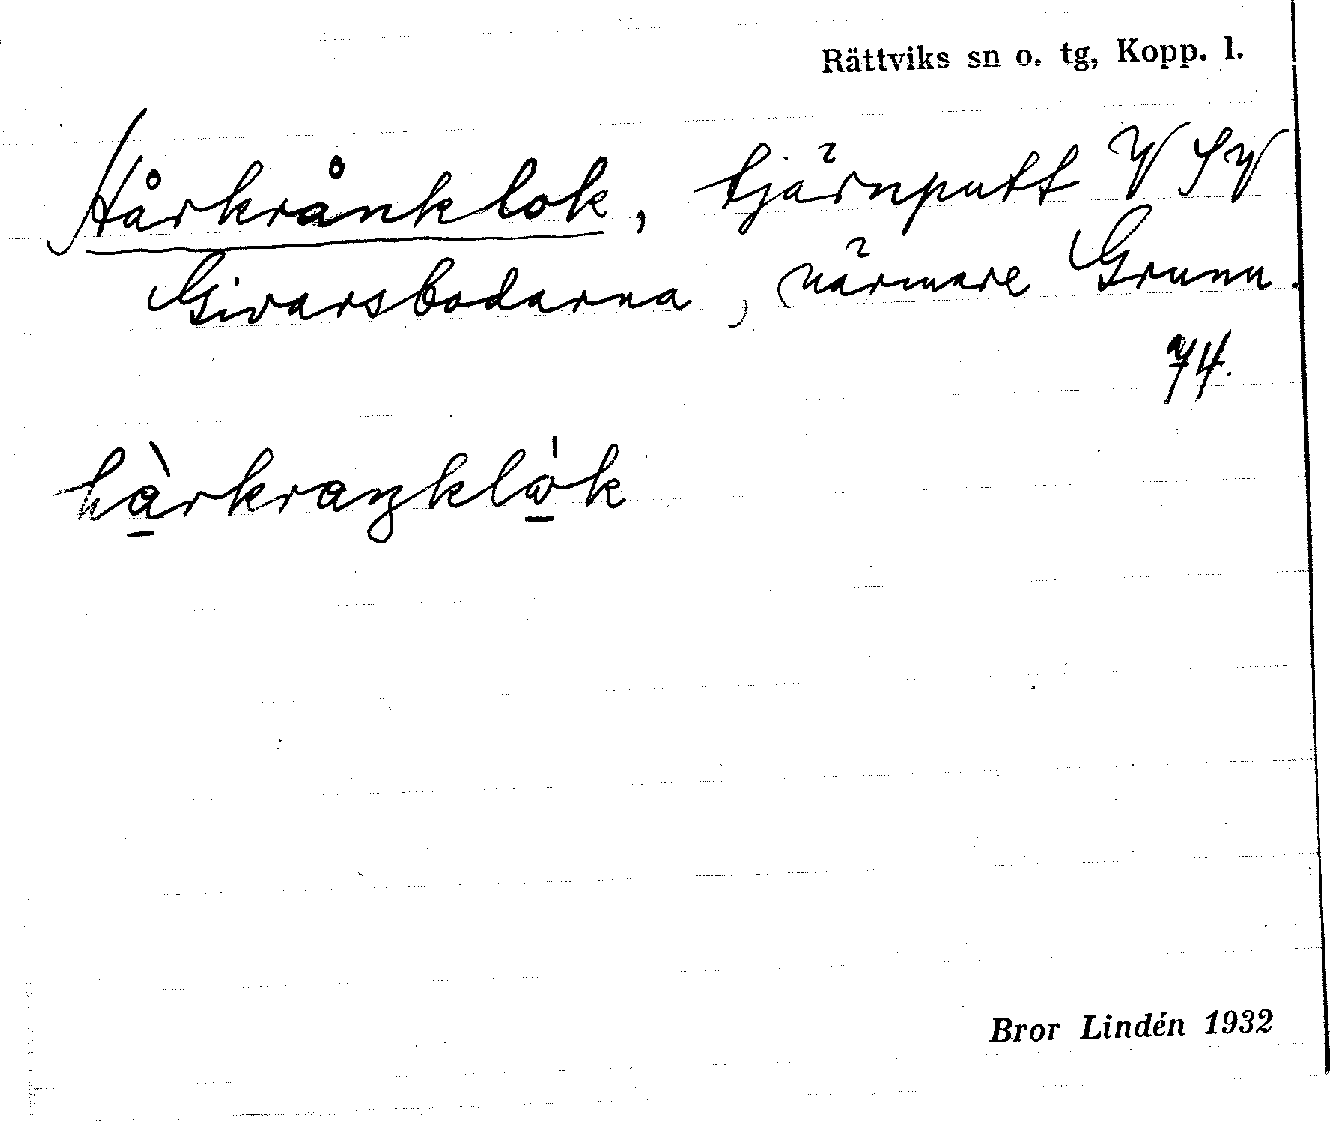 Rättviks sn o. tg, Kopp. l.
Hårkrånklok, tjärnputt V SV
Givarsbodarna, närmare Grunu.
74.
hàrkraŋklòk
Bror Lindén 1932